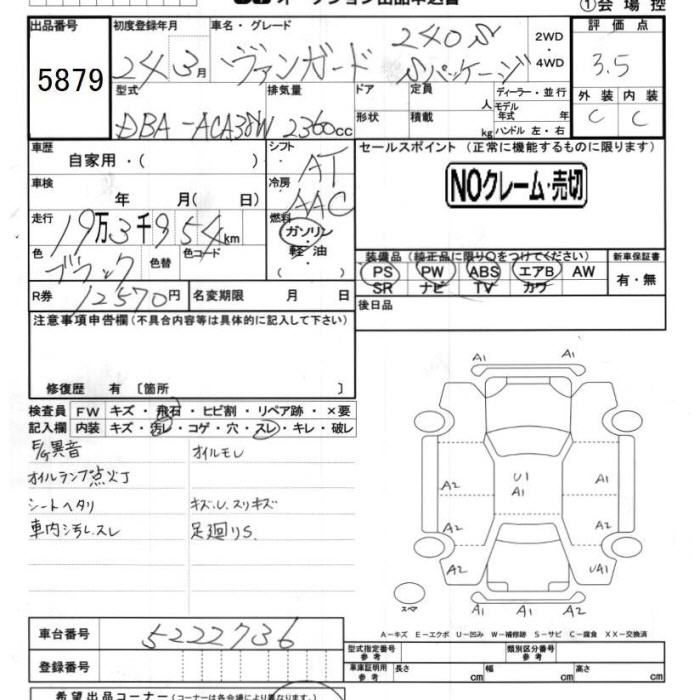 オークション出品申込書
①会場控
出品番号
5879
初度登録年月
24 3月
車名・グレード
ヴァンガード
240S
Sパッケージ
2WD
4WD
評価点
3.5
外装
内装
C
C
型式
DBA-ACA38W
排気量
2360cc
ドア
形状
定員
人
積載
kg
ディーラー・並行
モデル
年式 年
ハンドル 左・右
車歴
自家用・( )
シフト
AT
セールスポイント (正常に機能するものに限ります)
NOクレーム・売切
車検
年 月( 日)
冷房
AAC
走行
19万3千954km
燃料
ガソリン
軽・油
・( )
色
ブラック
色替
色コード
装備品(純正品に限り〇をつけてください)
PS PW ABS エアB AW
SR ナビ TV カワ
新車保証書
有・無
R券
12570円
名変期限 月 日
後日品
注意事項申告欄(不具合内容等は具体的に記入して下さい)
修復歴 有 〔箇所 〕
検査員
記入欄
FW キズ・飛石・ヒビ割・リペア跡・×要
内装 キズ・汚レ・コゲ・穴・スレ・キレ・破レ
E/G異音
オイルモレ
オイルランプ点火丁
シートヘタリ
キズ.U.スリキズ
車内汚し.スレ
足廻りS.
A1
A1
A2
U1
A1
A1
A2
A2
A2
UA1
スペア
A1 A1 A2
A-キズ E-エクボ U-凹み W-補修跡 S-サビ C-腐食 XX-交換済
車台番号
5222736
登録番号
型式指定番号
参考
類別区分番号
参考
車庫証明用
参考
長さ cm
幅 cm
高さ cm
希望出品コーナー(コーナーは各会場により異なります)